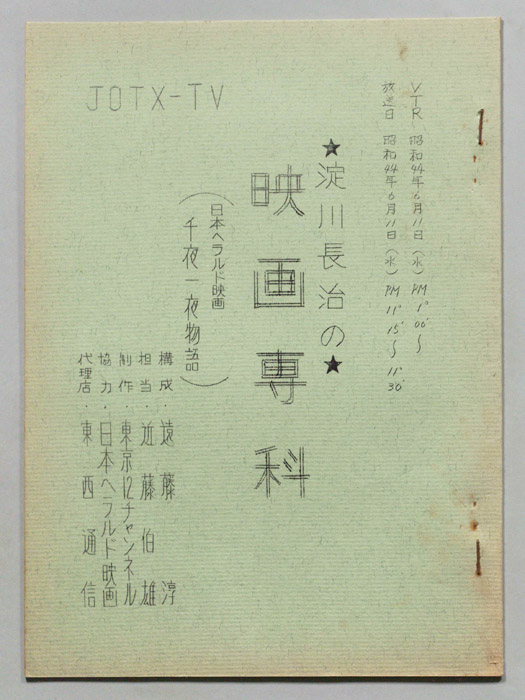 JOTX-TV
VTR 昭和44年6月11日(水)PM 1°00′〜
放送日 昭和44年6月11日(水)PM 11°15′〜11°30′
★淀川長治の★
映画専科
日本ヘラルド映画
(千夜一夜物語)
構成・遠藤 淳
担当・近藤伯雄
制作・東京12チャンネル
協力・日本ヘラルド映画
代理店・東西通信